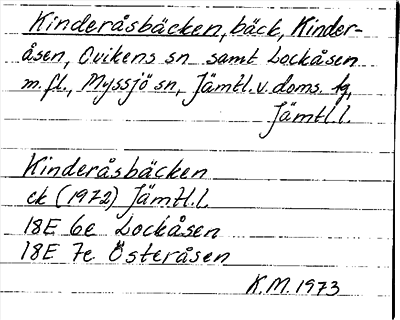 Kinderåsbäcken, bäck, Kinder-
åsen, Ovikens sn samt Lockåsen
m.fl., Myssjö sn, Jämtl. v. doms. tg,
Jämtl. l.
Kinderåsbäcken
ek (1972) Jämtl. l.
18E 6e Lockåsen
18E 7e Österåsen
K.M. 1973